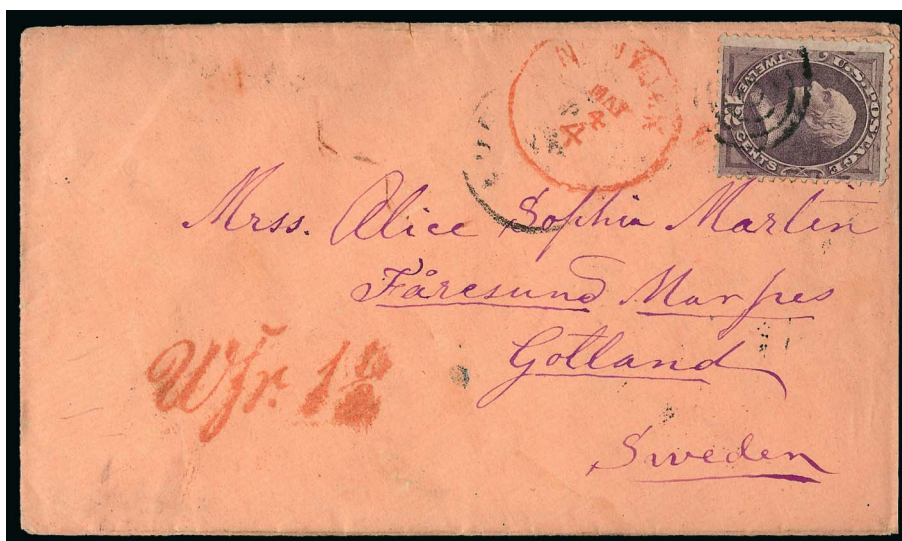 U.S. POSTAGE
TWELVE
CENTS
MAY
4
Mrss. Alice Sophia Martin
Fåresund Marpes
Gotland
Sweden
Wfr. 1¼